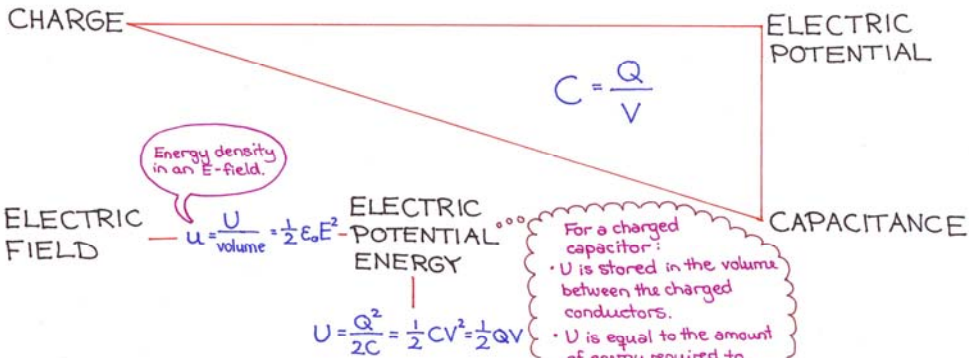 CHARGE
ELECTRIC
POTENTIAL
C = Q/V
Energy density
in an E-field.
ELECTRIC
FIELD
u = U/volume = ½ ε₀E²
ELECTRIC
POTENTIAL
ENERGY
For a charged
capacitor:
· U is stored in the volume
between the charged
conductors.
· U is equal to the amount
of energy required to
CAPACITANCE
U = Q²/2C = ½ CV² = ½ QV